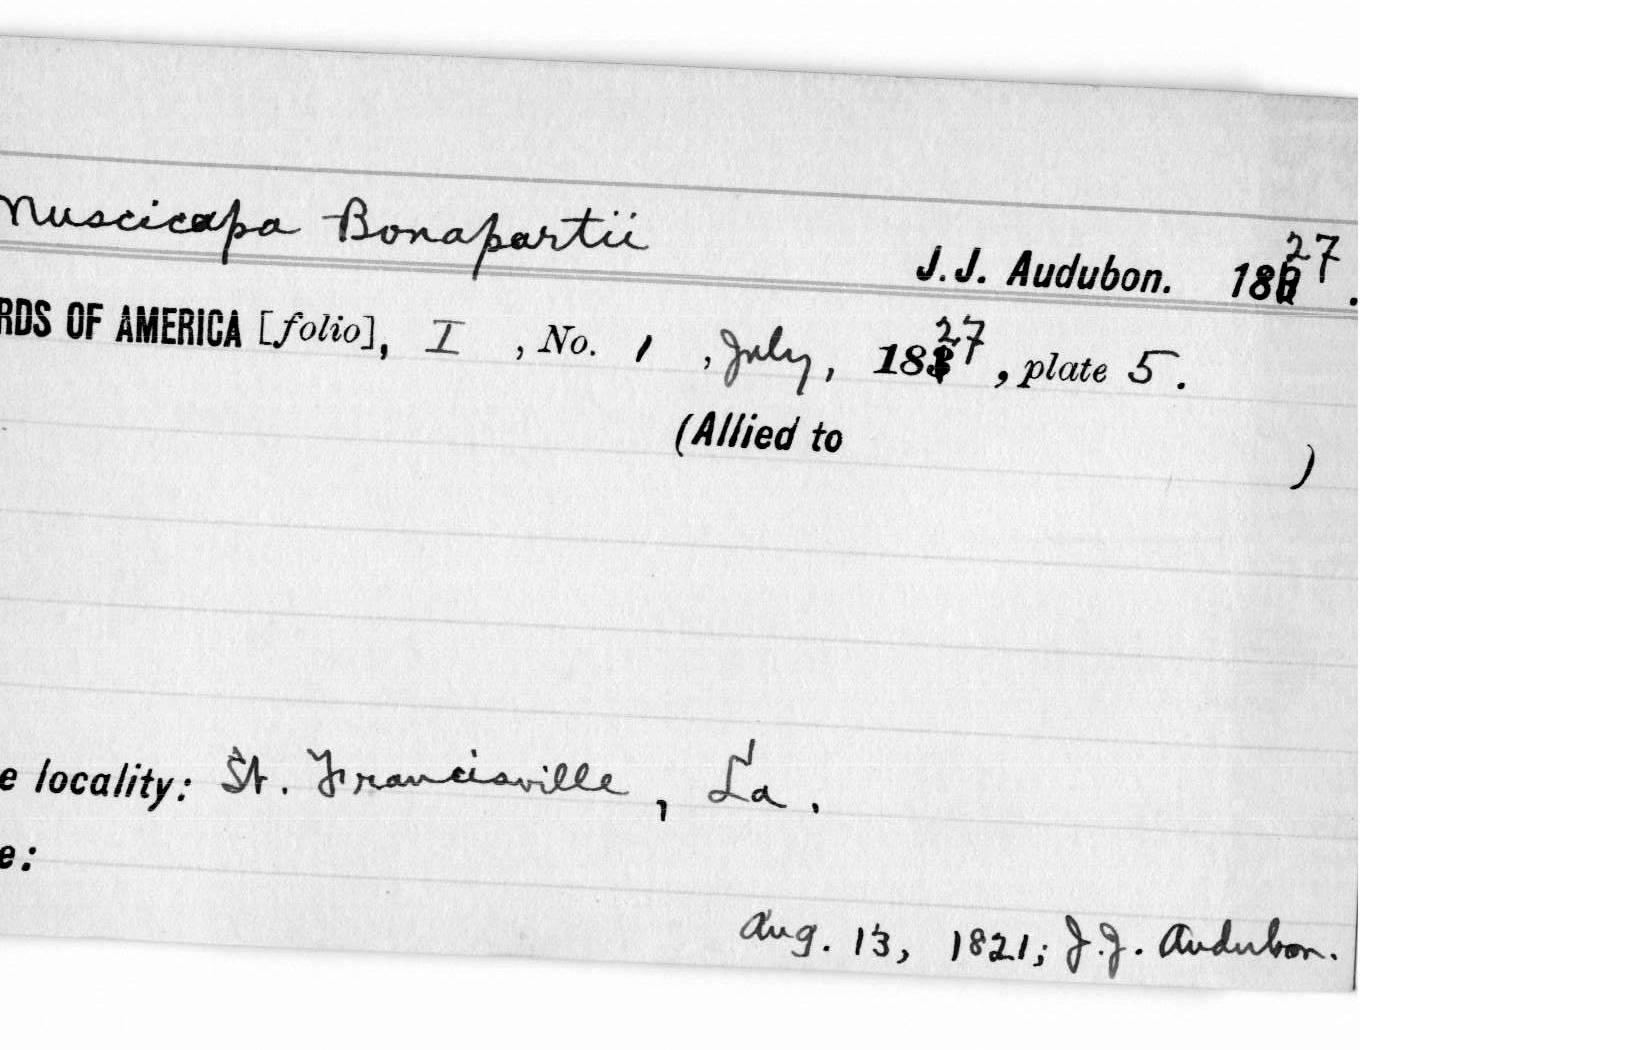 Muscicapa Bonapartii
J. J. Audubon. 1827.
RDS OF AMERICA [folio], I , No. 1 , July, 1827, plate 5.
(Allied to )
e locality: St. Francisville, La.
e:
Aug. 13, 1821; J.J. Audubon.